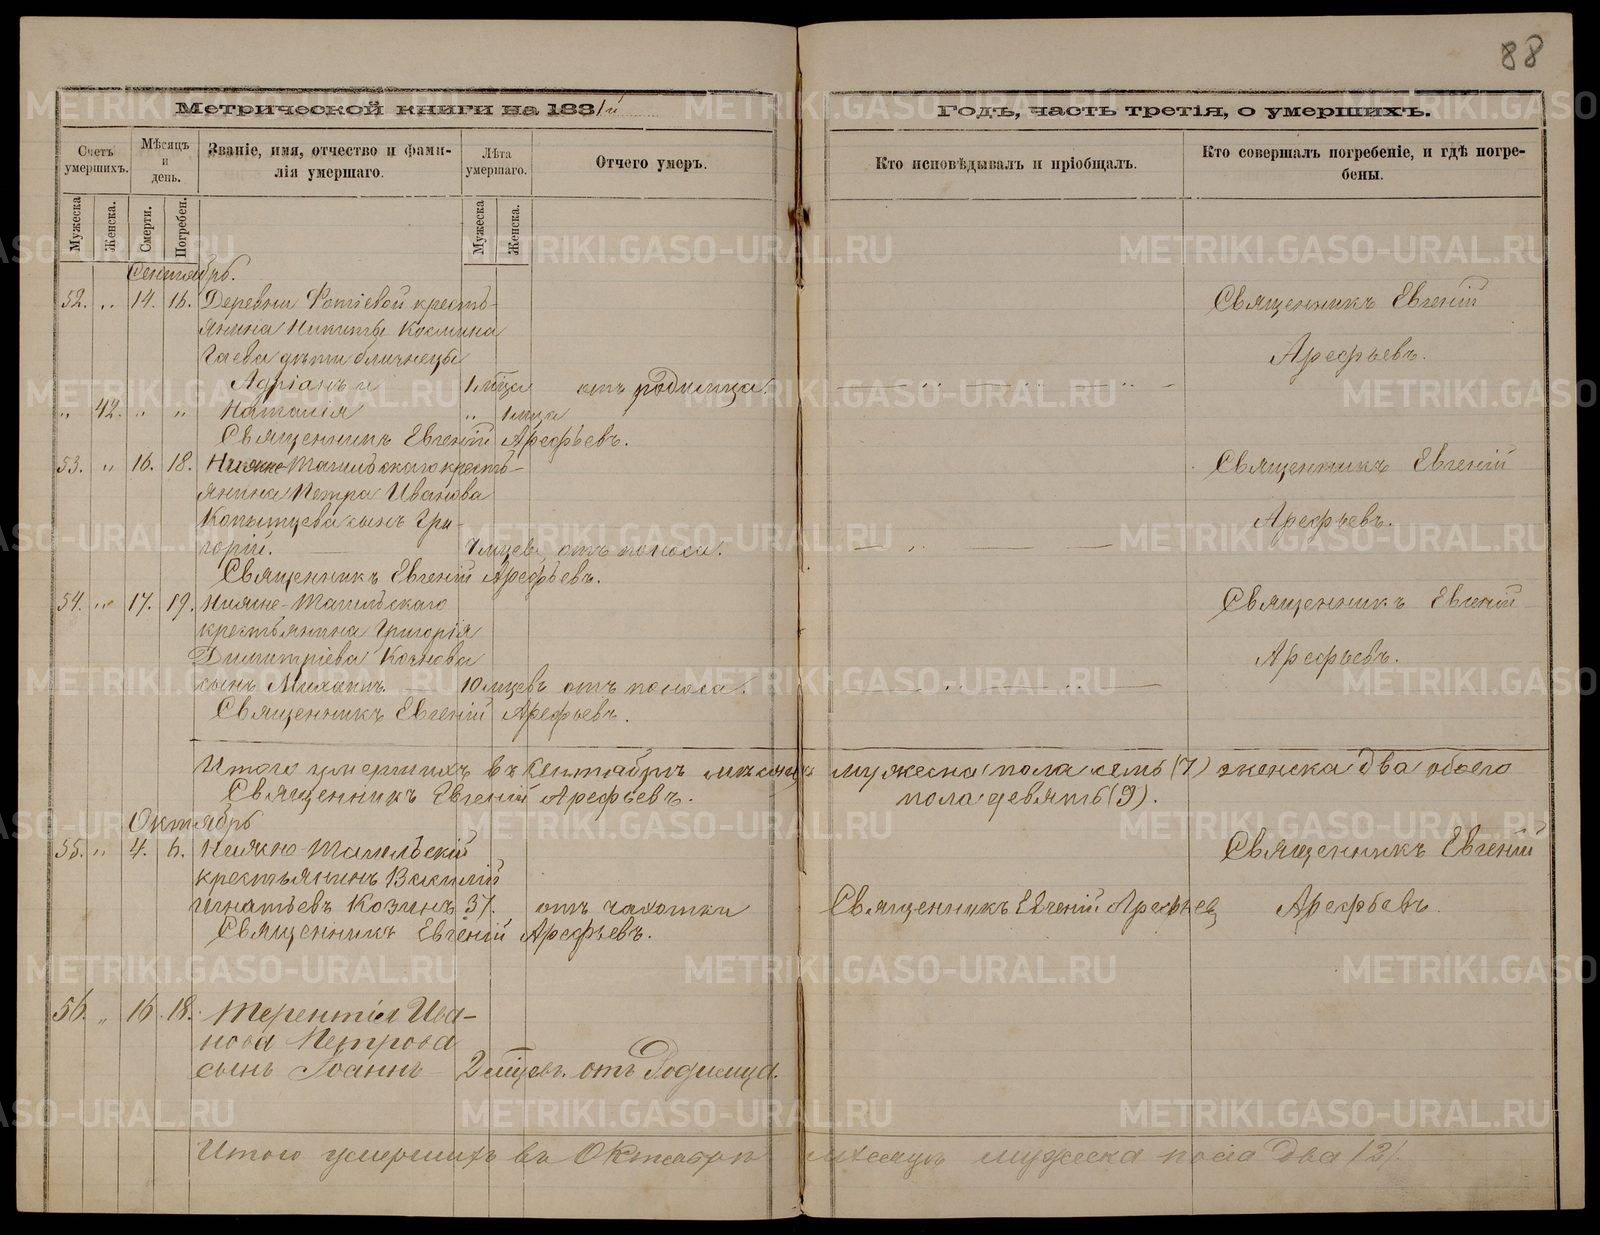 88
Метрической книги на 1881й
Годъ, часть третія, о умершихъ.
Счетъ умершихъ.
Мѣсяцъ и день.
Званіе, имя, отчество и фами-
лія умершаго.
Лѣта умершаго.
Отчего умеръ.
Кто исповѣдывалъ и пріобщалъ.
Кто совершалъ погребеніе, и гдѣ погре-
бены.
Мужеска
Женска.
Смерти.
Погребен.
Мужеска
Женска.
Сентябрь.
52. „ 14. 16. Деревни Фотіевой кресть- Священникъ Евгеній
янина Никиты Космина
Гаева дѣти близнецы Арефьевъ.
Адріанъ и 1 мца отъ родимца.
„ 42. „ „ Наталія „ 1 мца
Священникъ Евгеній Арефьевъ.
53. „ 16. 18. Нижне-Тагильскаго кресть- Священникъ Евгеній
янина Петра Иванова
Копытцева сынъ Гри- Арефьевъ.
горій. 7 мцевъ отъ поноса.
Священникъ Евгеній Арефьевъ.
54. „ 17. 19. Нижне-Тагильскаго Священникъ Евгеній
крестьянина Григорія
Димитріева Арефьевъ.
сынъ Михаилъ 10 мцевъ отъ поноса.
Священникъ Евгеній Арефьевъ.
Итого умершихъ въ Сентябрѣ мѣсяцѣ мужеска пола семь (7) женска два обоего
Священникъ Евгеній Арефьевъ. пола девять (9).
Октябрь
55. „ 4. 6. Нижне-Тагильскій Священникъ Евгеній
крестьянинъ Василій
Игнатьевъ Козинъ 37. отъ чахотки Священникъ Евгеній Арефьевъ Арефьевъ.
Священникъ Евгеній Арефьевъ.
56. „ 16. 18. Терентія Ива-
нова Петрова
сынъ Іоаннъ 2 мцев. отъ Родимца.
Итого умершихъ въ Октябрѣ мѣсяцѣ мужеска пола два (2).
METRIKI.GASO-URAL.RU